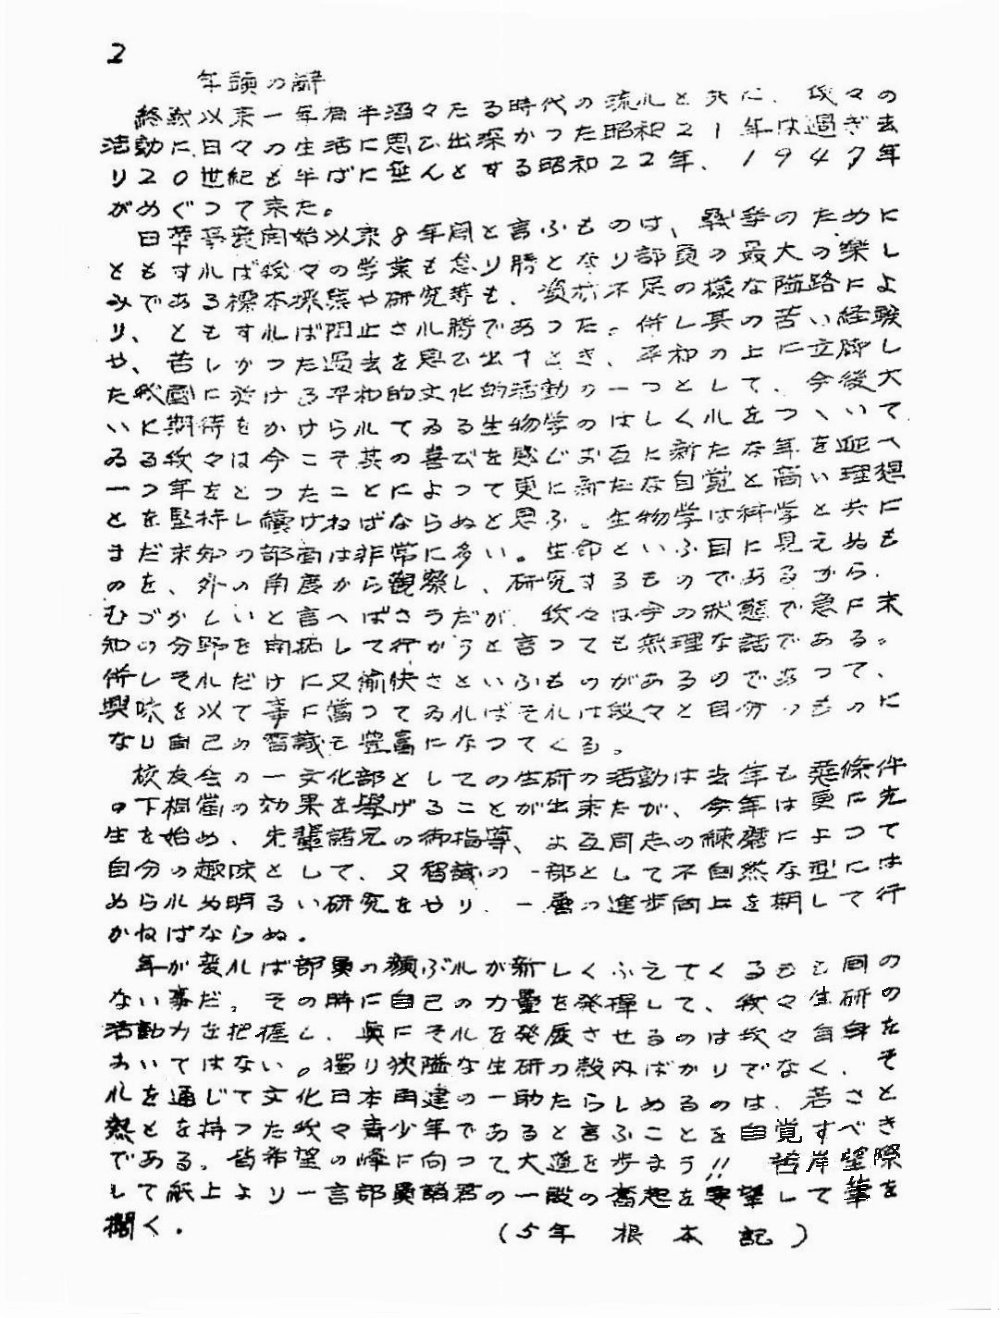 2
年頭の辞
終戦以来一年有半滔々たる時代の流れと共に、我々の
活動に、日々の生活に思ひ出深かつた昭和21年は過ぎ去
り20世紀も半ばに垂んとする昭和22年、1947年
がめぐつて来た。
日華事変開始以来8年間と言ふものは、戦争のために
ともすれば我々の学業も怠り勝となり部員の最大の楽し
みである標本採集や研究等も、資材不足の様な隘路によ
り、ともすれば阻止され勝であつた。併し其の苦い経験
や、苦しかつた過去を思ひ出すとき、平和の上に立脚し
た我国に於ける平和的文化的活動の一つとして、今後大
いに期待をかけられてゐる生物学のはしくれをつゝいて
ゐる我々は今こそ其の喜びを感じお互に新たな年を迎へ
一つ年をとつたことによつて更に新たな自覚と高い理想
とを堅持し続けねばならぬと思ふ。生物学は科学と共に
まだ未知の部面は非常に多い。生命といふ目に見えぬも
のを、外の角度から観察し、研究するものであるから、
むづかしいと言へばさうだが、我々は今の状態で急に未
知の分野を開拓して行かうと言つても無理な話である。
併しそれだけに又愉快さといふものがあるのであつて、
興味を以て事に当つてゐればそれは段々と自分のものに
なり自己の智識も豊富になつてくる。
校友会の一文化部としての生研の活動は去年も悪條件
の下相当の効果を挙げることが出来たが、今年は更に先
生を始め、先輩諸兄の御指導、よる同志の練磨によつて
自分の趣味として、又智識の一部として不自然な型には
められぬ明るい研究をやり、一層の進歩向上を期して行
かねばならぬ。
年が変れば部員の顔ぶれが新しくふえてくるもも間の
ない事だ。その時に自己の力量を発揮して、我々生研の
活動力を把握し、真にそれを発展させるのは我々自身を
おいてはない。独り狭隘な生研の殻内ばかりでなく、そ
れを通じて文化日本再建の一助たらしめるのは、若さと
熱とを持つた我々青少年であると言ふことを自覚すべき
である。皆希望の峰に向つて大道を歩まう!! 
して紙上より一言部員諸君の一段の奮起を要望して筆を
擱く。 (5年 根本記)